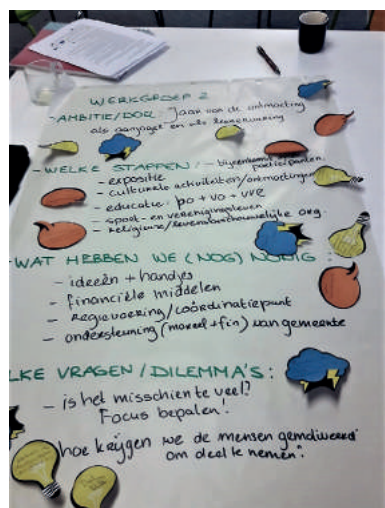 WERKGROEP 2
- AMBITIE/DOEL: Jaar van de ontmoeting
als aanjager en als
- WELKE STAPPEN / - bijeenkomst participanten.
- expositie
- culturele activiteiten/ontmoetingen
- educatie: po + vo + vve
- sport- en verenigingsleven
- religieuze/levensbeschouwelijke org.
- WAT HEBBEN WE (NOG) NODIG:
- ideeën + handjes
- financiële middelen
- Regievoering/coördinatiepunt
- ondersteuning (moreel + fin) van gemeente
LKE VRAGEN / DILEMMA'S:
- is het misschien te veel?
Focus bepalen.
hoe krijgen we de mensen gemotiveerd
om deel te nemen?